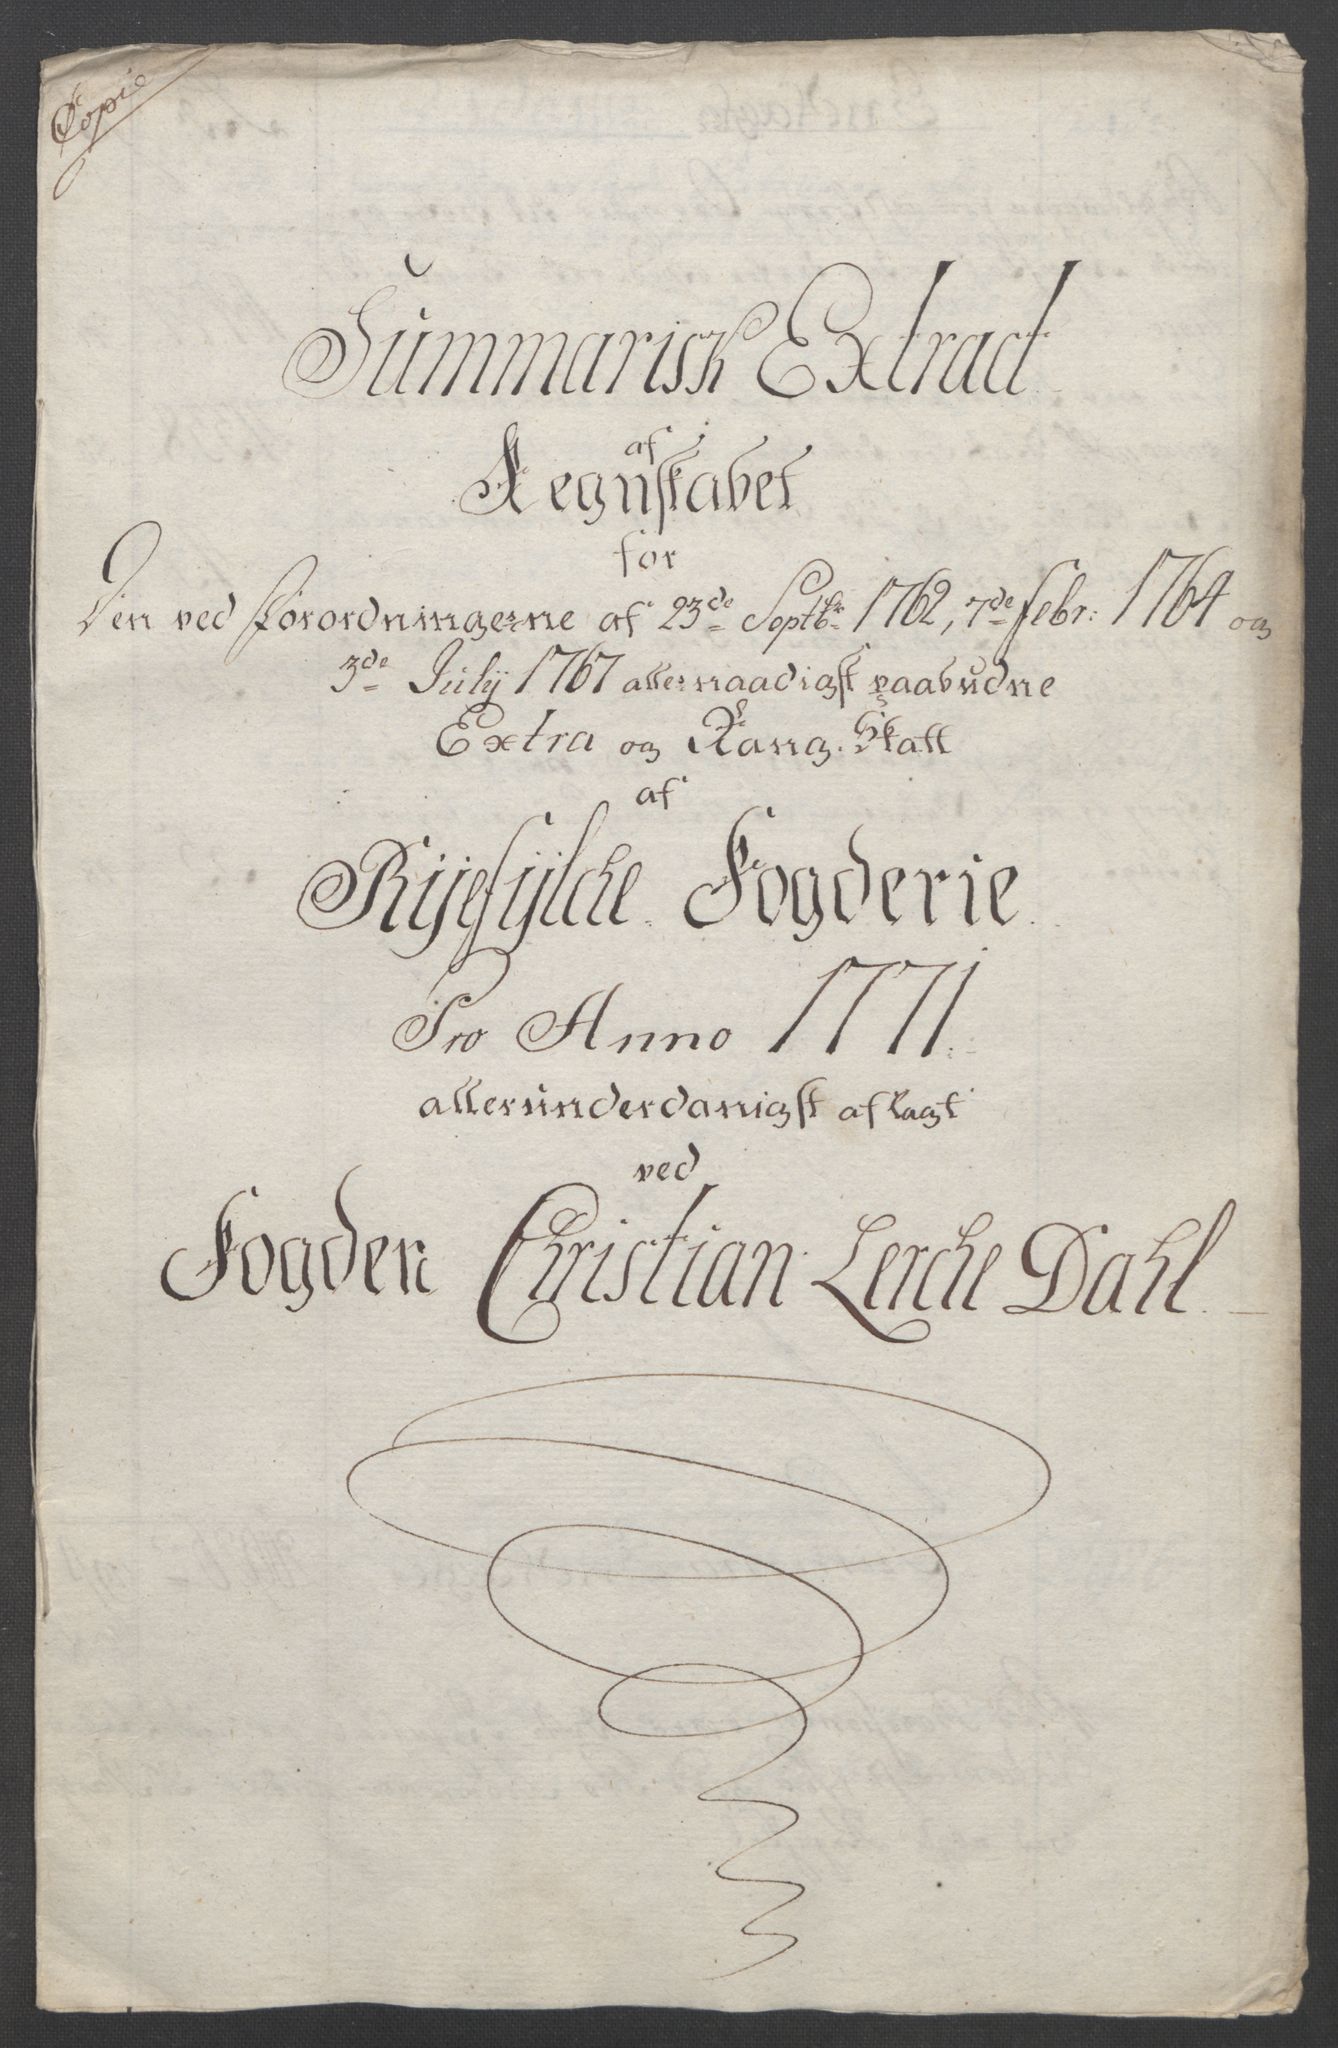 Copie
Summarisk Extract
af
Regnskabet
for
Den ved Forordningerne af 23de Septbr 1762, 7de Febr: 1764 og
3de Julÿ 1767 allernaadigst paabudne
Extra og Rang Skatt
af
Rÿefÿlche Fogderie
Pro Anno 1771.
allerunderdanigst aflagt
ved
Fogden Christian Lerche Dahl.